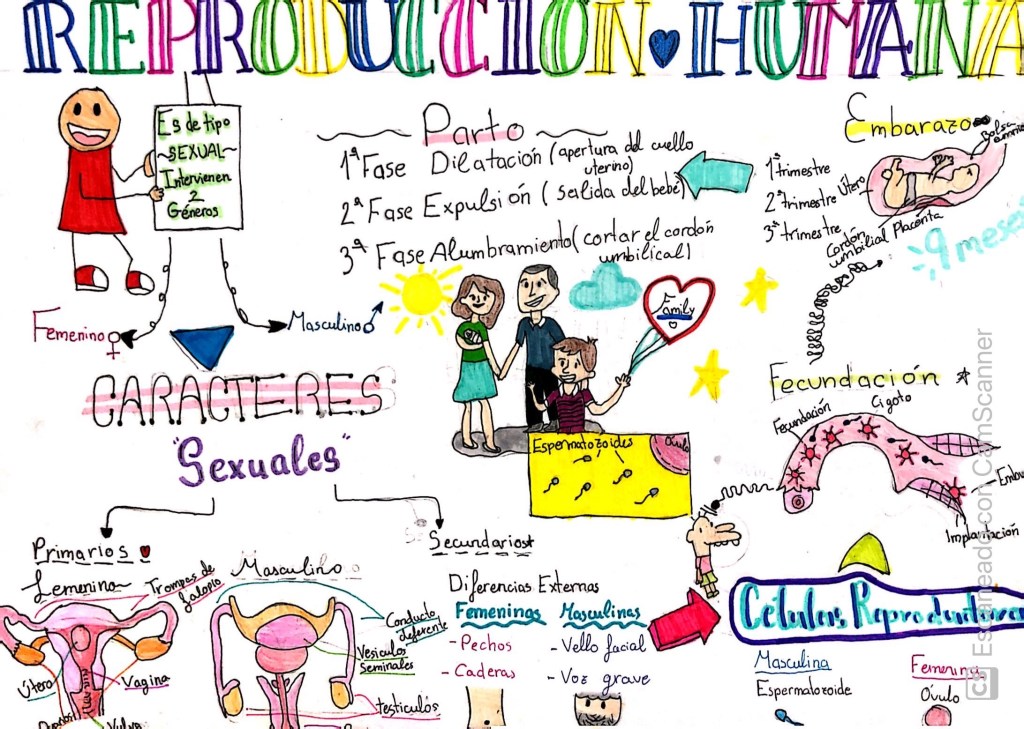 REPRODUCCIÓN HUMANA
Es de tipo
~SEXUAL~
Intervienen
2
Géneros
Femenino
Masculino
Parto
1ª Fase Dilatación (apertura del cuello
uterino)
2ª Fase Expulsión (salida del bebé)
3ª Fase Alumbramiento (cortar el cordón
umbilical)
Embarazo
Bolsa
1º trimestre
2º trimestre
3º trimestre
Útero
Placenta
Cordón
umbilical
9 meses
Family
CARACTERES
"Sexuales"
Espermatozoides
Óvulo
Fecundación
Fecundación
Cigoto
Implantación
Primarios
Femenino
Trompas de
falopio
Útero
Vagina
Vulva
Masculino
Conducto
deferente
Vesículas
Seminales
testículos
Secundarios
Diferencias Externas
Femeninas
- Pechos
- Caderas
Masculinas
- Vello facial
- Voz grave
Células Reproductoras
Masculina
Espermatozoide
Femenina
Óvulo
CS Escaneado con CamScanner